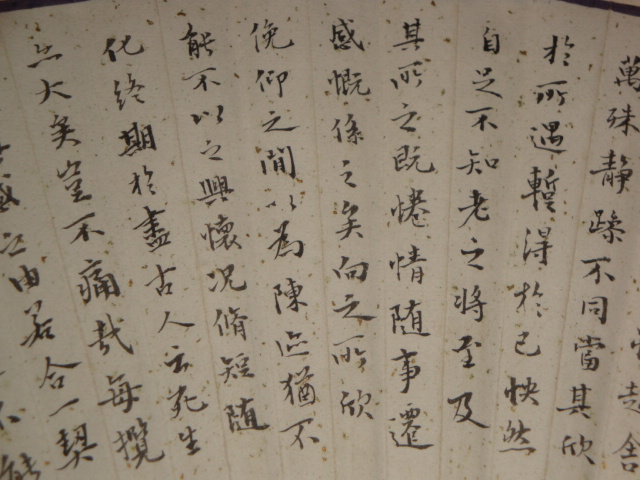 趣舍
萬殊靜躁不同當其欣
於所遇暫得於己怏然
自足不知老之將至及
其所之既惓情随事遷
感慨係之矣向之所欣
俛仰之間以為陳迹猶不
能不以之興懷況脩短随
化終期於盡古人云死生
亦大矣豈不痛哉每攬
感之由若合一契